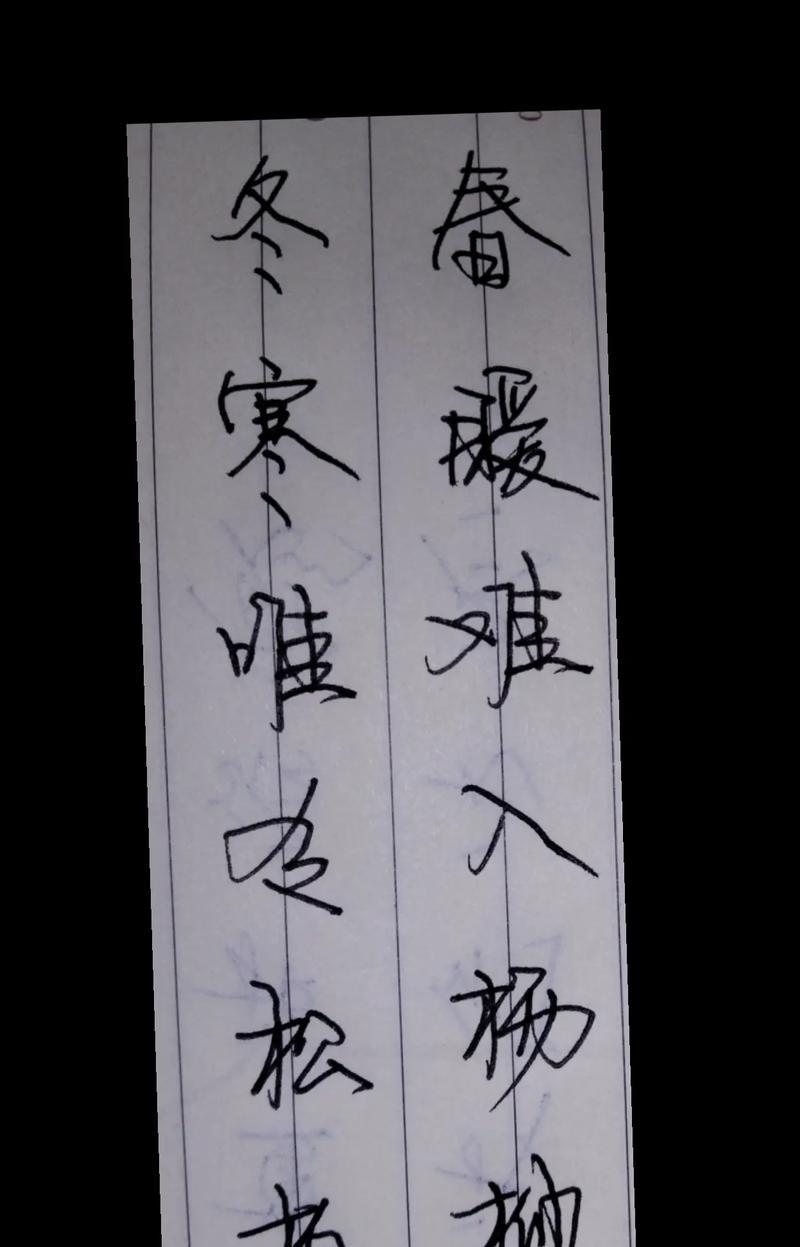 春暖难入杨柳
冬寒唯令松